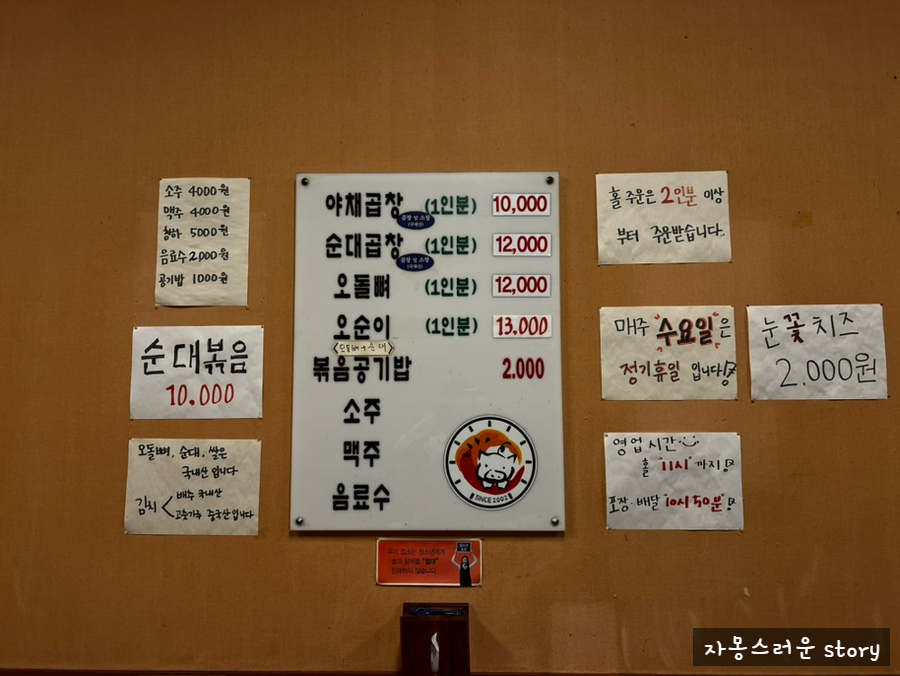 소주 4000원
맥주 4000원
청하 5000원
음료수 2000원
공기밥 1000원
순대볶음
10.000
오돌뼈, 순대, 쌀은
국내산 입니다
김치 < 배추 국내산
고춧가루 중국산 입니다
야채곱창 (1인분) 10,000
곱창 및 소창
(국내산)
순대곱창 (1인분) 12,000
곱창 및 소창
(국내산)
오돌뼈 (1인분) 12,000
오순이 (1인분) 13.000
<오돌뼈+순대>
볶음공기밥 2.000
소주
맥주
음료수
SINCE 2002
우리 업소는 청소년에게
술과 담배를 "절대"
판매하지 않습니다.
홀 주문은 2인분 이상
부터 주문받습니다.
매주 "수요일"은
정기휴일 입니다!
눈꽃치즈
2.000원
영업시간
홀 "11시" 까지!
포장·배달 "10시50분"!
자몽스러운 story